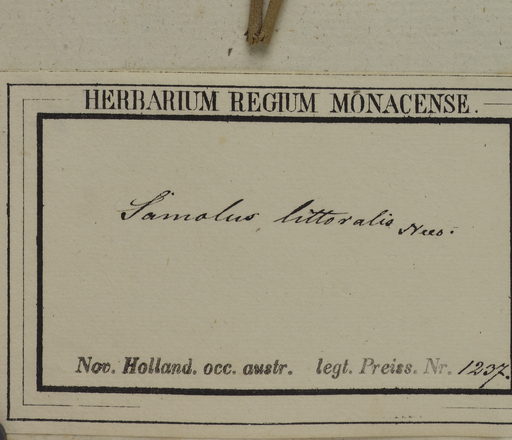 HERBARIUM REGIUM MONACENSE.
Samolus littoralis Nees.
Nov. Holland. occ. austr. legt. Preiss. Nr. 1237.